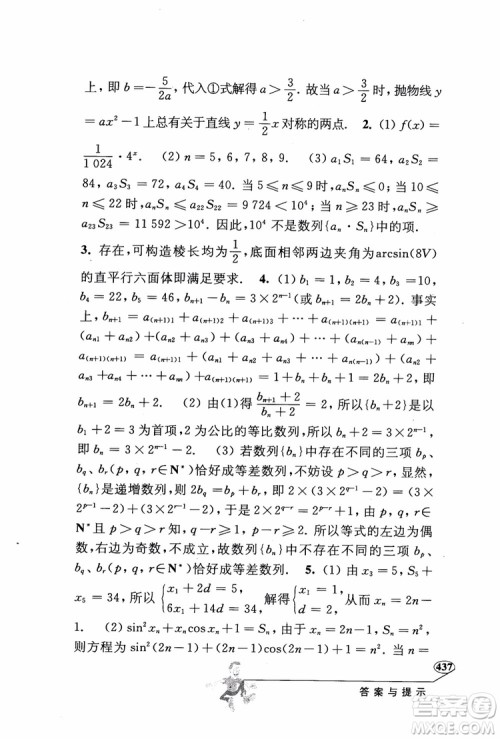 上，即 b=-5/(2a)，代入①式解得 a>3/2. 故当 a>3/2 时，抛物线
y=ax²-1 上总有关于直线 y=1/2 x 对称的两点. 2. (1) f(x)=
1/1 024 · 4ˣ. (2) n=5，6，7，8，9. (3) a₁S₁=0，a₂S₂=
84，a₃S₃=60，a₄S₄=0. 当 5≤n≤22 时，aₙSₙ≤
a₂₂S₂₂=9 724<10⁴. 当 n≥23 时，aₙSₙ≥
a₂₃S₂₃=11 592>10⁴. 因此，10⁴ 不是数列{aₙ·Sₙ}中的项.
3. 存在，可构造棱长均为 1/2，底面相邻两边夹角为 arcsin(8V)
的直平行六面体即满足要求. 4. (1) b₁=1，b₂=4，b₃=10，
b₄=22，b₅=46. 可见：bₙ₊₁-bₙ=3×2ⁿ⁻¹(n∈N*). 事实
上，bₙ₊₁=a₍ₙ₊₁₎₁+a₍ₙ₊₁₎₂+a₍ₙ₊₁₎₃+…+a₍ₙ₊₁₎₍ₙ₊₁₎=1+
(aₙ₁+aₙ₂)+(aₙ₂+aₙ₃)+…+a₍ₙ₊₁₎₍ₙ₊₁₎=1+(aₙ₁+
aₙ₂)+(aₙ₂+aₙ₃)+…+aₙₙ)+a₍ₙ₊₁₎₍ₙ₊₁₎=2bₙ+2，即
bₙ₊₁=2bₙ+2. (2) 由(1)得 (bₙ₊₁+2)/(bₙ+2)=2，所以{bₙ+2}是以
b₁+2=3 为首项，2 为公比的等比数列，所以 bₙ+2=3×
2ⁿ⁻¹，bₙ=3×2ⁿ⁻¹-2. (3) 若数列{bₙ}中存在不同的三项 bₚ、
b_q、bᵣ(p，q，r∈N*)恰好成等差数列，不妨设 p>q>r，显然，
{bₙ}是递增数列，所以 2b_q=bₚ+bᵣ，即 2×(3×2^(q-1)-2)=
(3×2^(p-1)-2)+(3×2^(r-1)-2)，于是 2×2^(q-r)=2^(p-r)+1，由 p，
q，r∈N* 且 p>q>r 知，q-r≥1，p-r≥2. 所以等式的左边为偶
数，右边为奇数，不成立，故数列{bₙ}中不存在不同的三项 bₚ、b_q、
bᵣ(p，q，r∈N*)恰好成等差数列. 5. (1) 由 x₃=5，x₁+
x₅=34，得 {x₁+2d=5, 6x₁+14d=34, 解得 {x₁=1, d=2. 所以 xₙ=2n-
1. (2) sin²xₙ+xₙcos xₙ+1=Sₙ，又因为 xₙ=2n-1，Sₙ=n²，
则方程为 sin²(2n-1)+(2n-1)cos(2n-1)+1=n². 当 n=
437
答案与提示